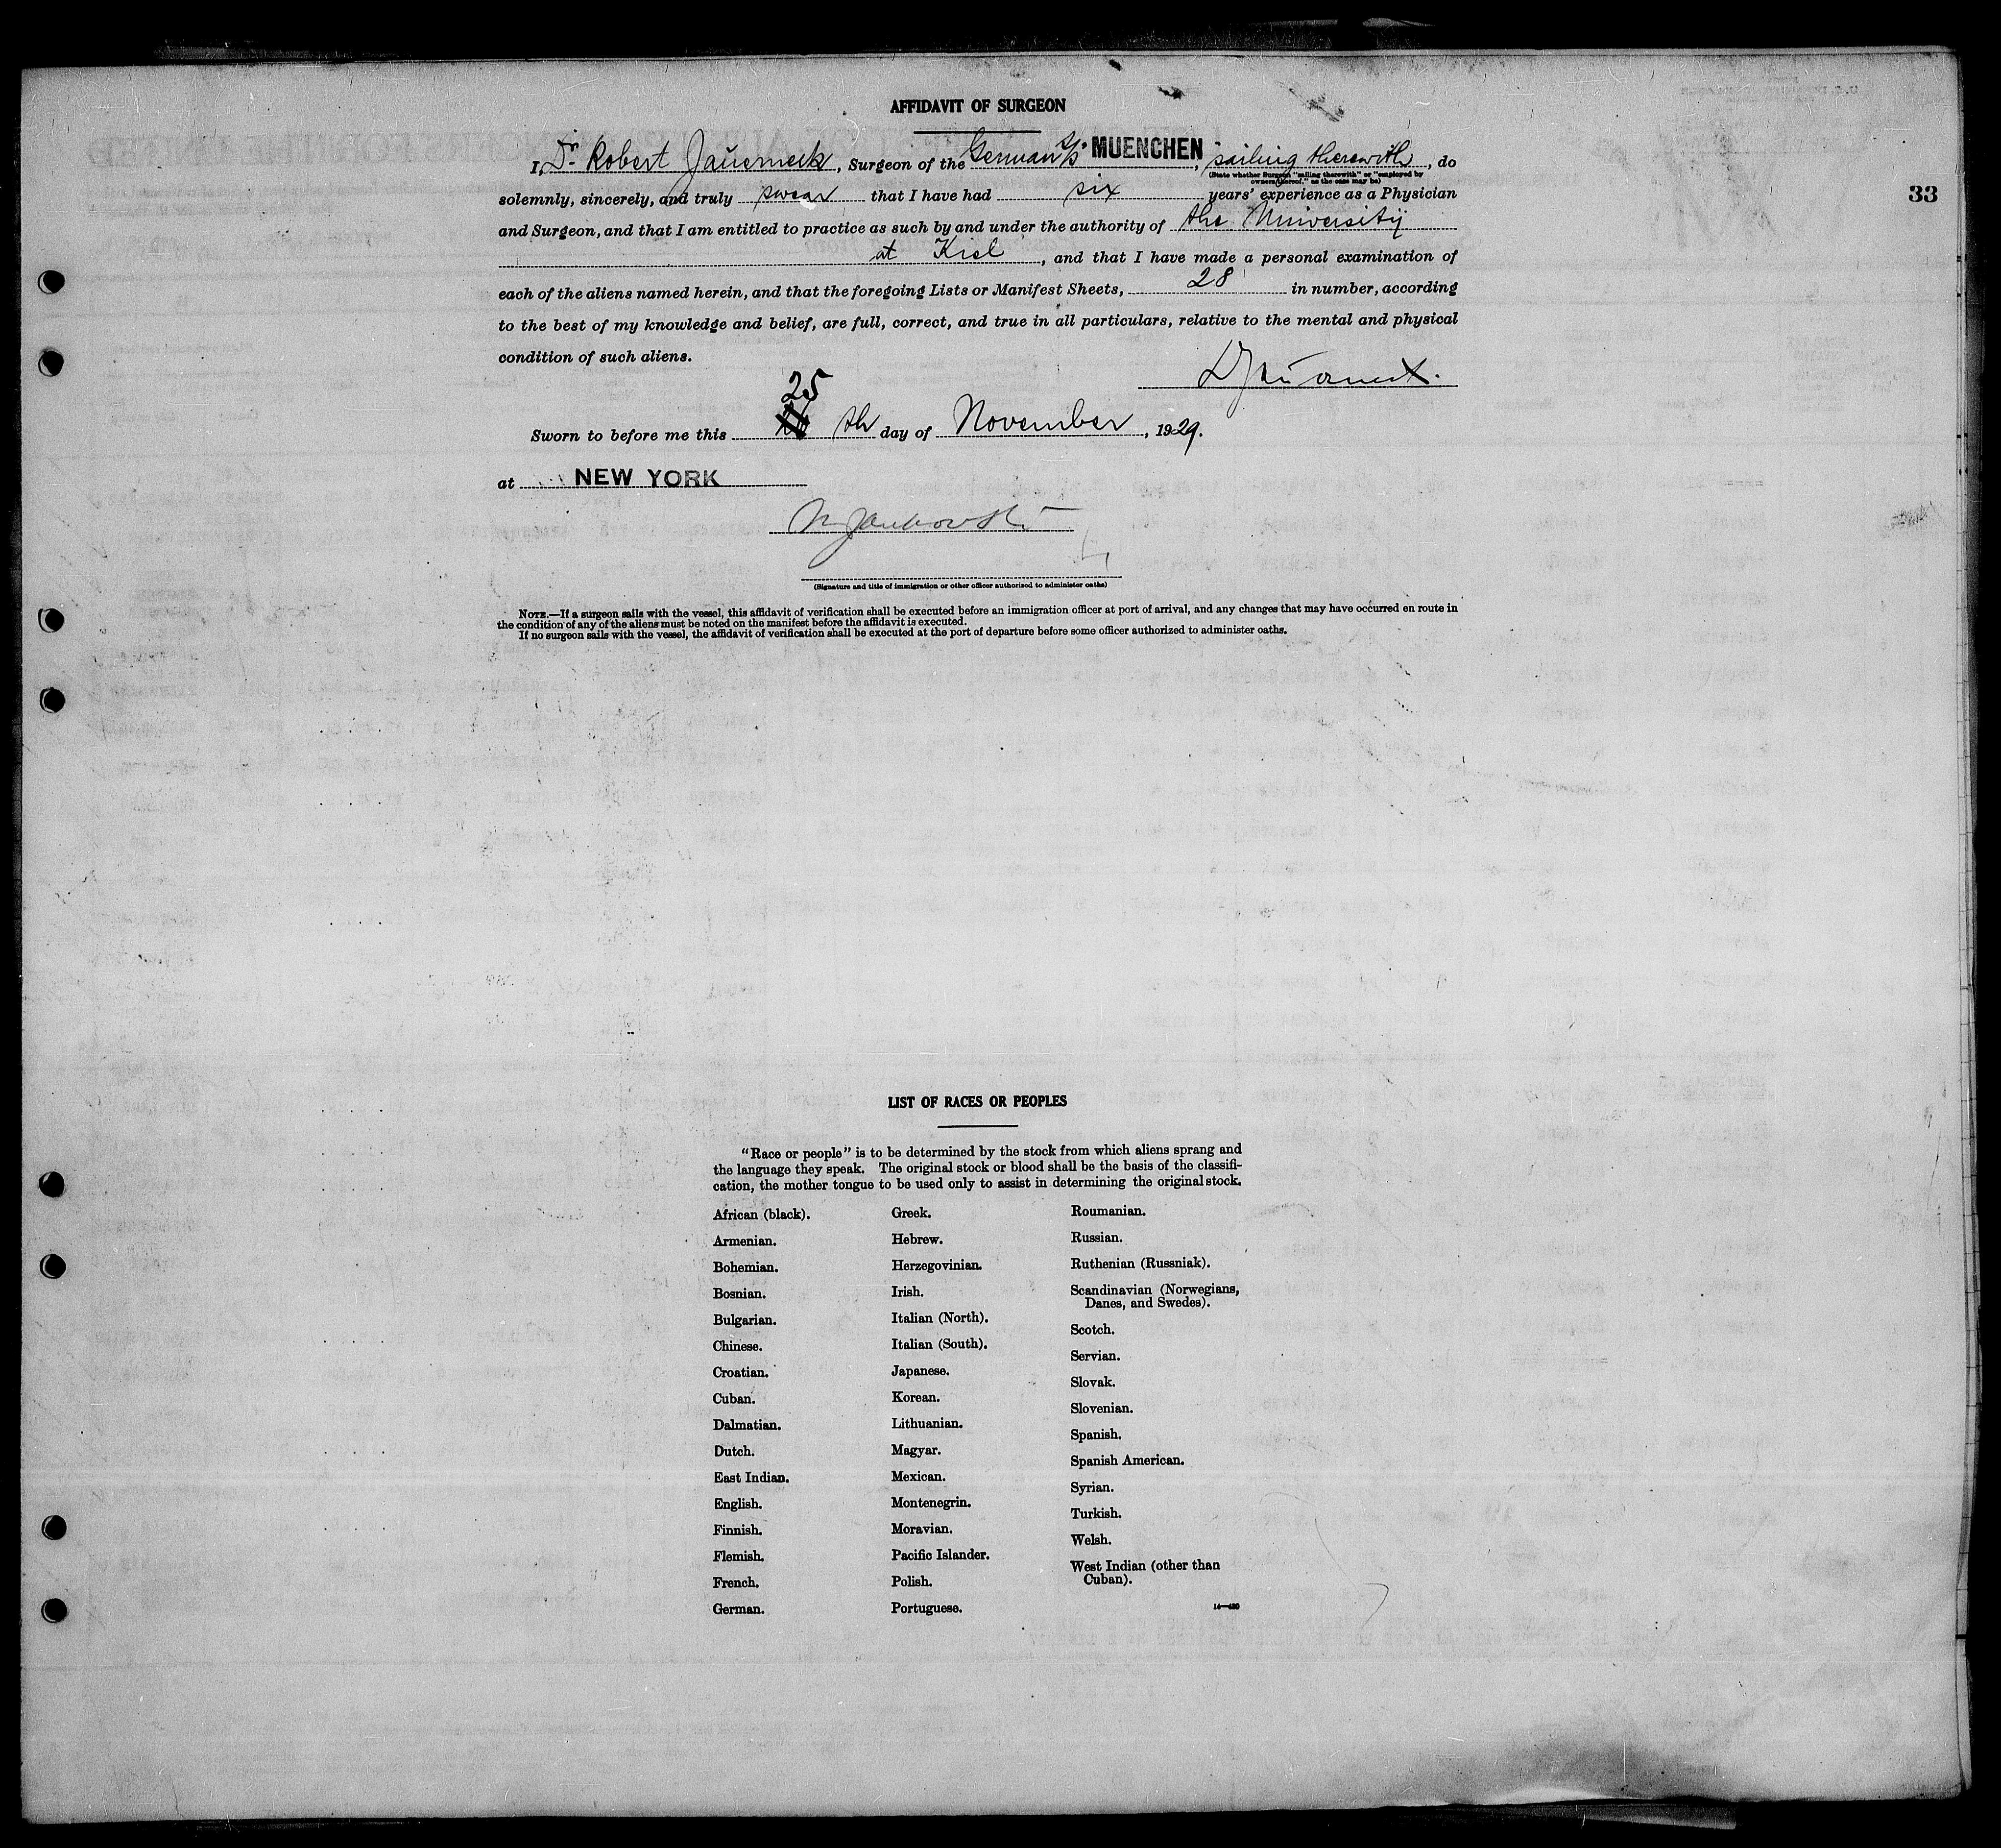 AFFIDAVIT OF SURGEON
I, Dr. Robert , Surgeon of the German S/S MUENCHEN, sailing therewith, do
(State whether Surgeon "sailing therewith" or "employed by
owners thereof," as the case may be)
33
solemnly, sincerely, and truly swear that I have had six years' experience as a Physician
and Surgeon, and that I am entitled to practice as such by and under the authority of the University
at Kiel, and that I have made a personal examination of
each of the aliens named herein, and that the foregoing Lists or Manifest Sheets, 28 in number, according
to the best of my knowledge and belief, are full, correct, and true in all particulars, relative to the mental and physical
condition of such aliens.
25
Sworn to before me this th day of November, 1929.
at NEW YORK
(Signature and title of immigration or other officer authorized to administer oaths)
NOTE.—If a surgeon sails with the vessel, this affidavit of verification shall be executed before an immigration officer at port of arrival, and any changes that may have occurred en route in
the condition of any of the aliens must be noted on the manifest before the affidavit is executed.
If no surgeon sails with the vessel, the affidavit of verification shall be executed at the port of departure before some officer authorized to administer oaths.
LIST OF RACES OR PEOPLES
"Race or people" is to be determined by the stock from which aliens sprang and
the language they speak. The original stock or blood shall be the basis of the classifi-
cation, the mother tongue to be used only to assist in determining the original stock.
African (black).
Armenian.
Bohemian.
Bosnian.
Bulgarian.
Chinese.
Croatian.
Cuban.
Dalmatian.
Dutch.
East Indian.
English.
Finnish.
Flemish.
French.
German.
Greek.
Hebrew.
Herzegovinian.
Irish.
Italian (North).
Italian (South).
Japanese.
Korean.
Lithuanian.
Magyar.
Mexican.
Montenegrin.
Moravian.
Pacific Islander.
Polish.
Portuguese.
Roumanian.
Russian.
Ruthenian (Russniak).
Scandinavian (Norwegians,
Danes, and Swedes).
Scotch.
Servian.
Slovak.
Slovenian.
Spanish.
Spanish American.
Syrian.
Turkish.
Welsh.
West Indian (other than
Cuban).